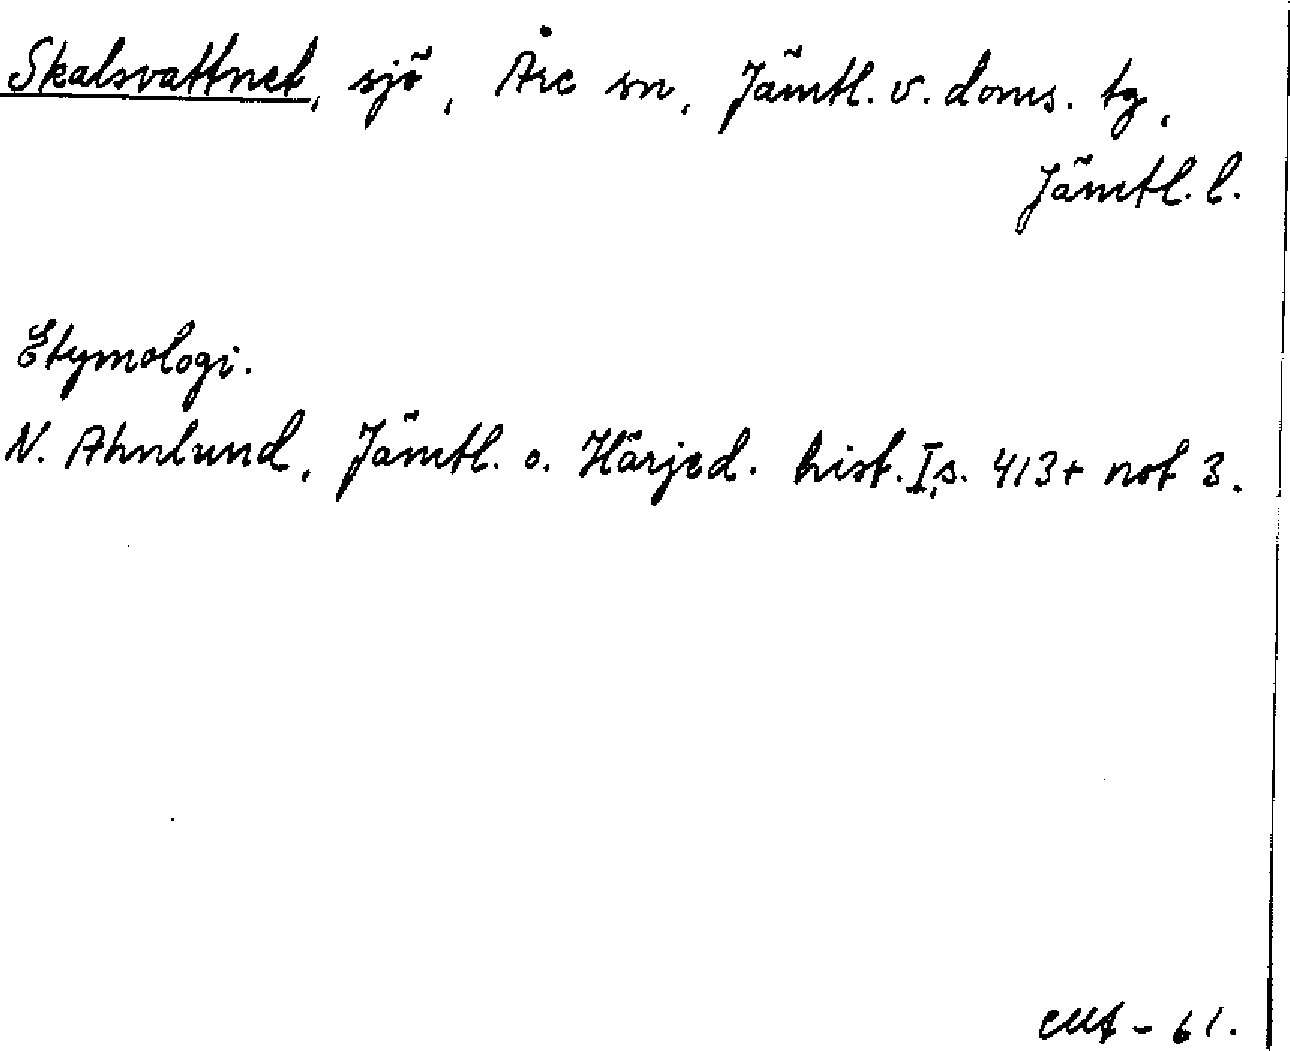 Skalsvattnet, sjö, Åre sn, Jämtl. v. doms. tg,
Jämtl. l.
Etymologi.
N. Ahnlund, Jämtl. o. Härjed. hist. I, s. 413 + not 3.
- 61.